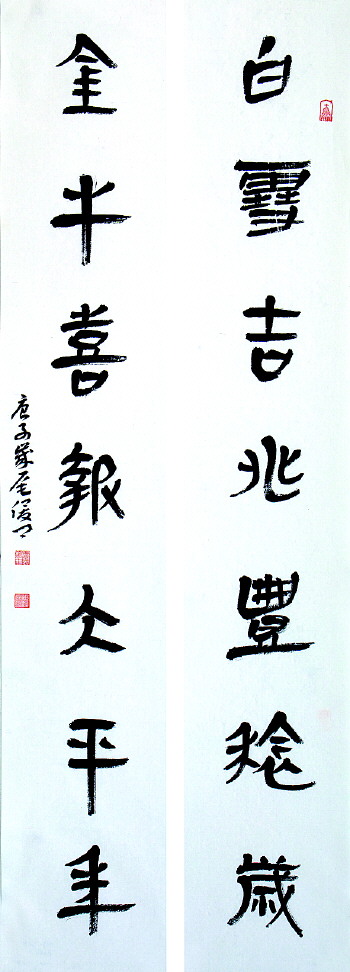 白雪吉兆豐稔歲
金牛喜報太平年
庚子歲尾